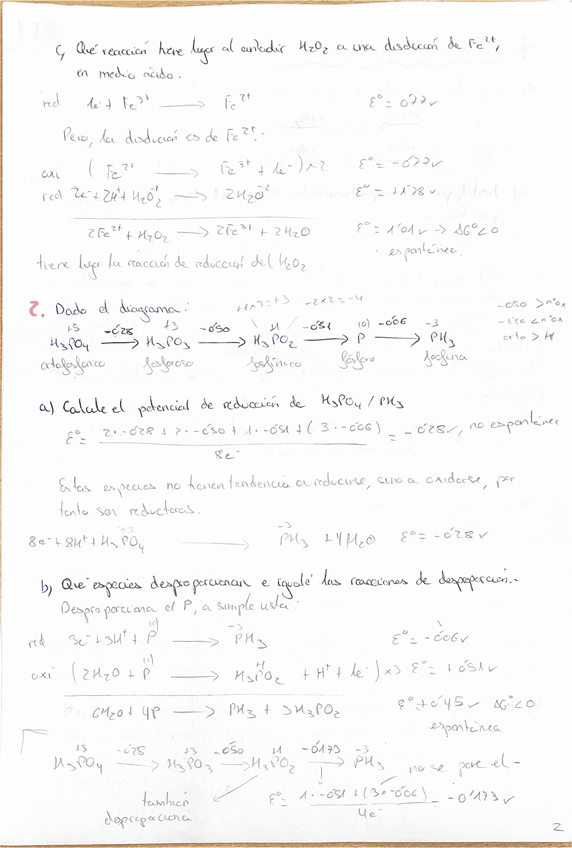 c) Qué reacción tiene lugar al añadir H₂O₂ a una disolución de Fe²⁺,
en medio ácido.
red 1e⁻ + Fe³⁺ ⟶ Fe²⁺ Ɛ° = 0'77 v
Pero, la disolución es de Fe²⁺.
oxi (Fe²⁺ ⟶ Fe³⁺ + 1e⁻) x2 Ɛ° = -0'77 v
red 2e⁻ + 2H⁺ + H₂O₂⁻¹ ⟶ 2H₂O⁻² Ɛ° = +1'78 v
2Fe²⁺ + H₂O₂ ⟶ 2Fe³⁺ + 2H₂O Ɛ° = 1'01 v → ΔG° < 0
espontánea.
tiene lugar la reacción de reducción del H₂O₂.
2. Dado el diagrama: +1x3=+3 -2x2=-4
+5 -0'28 +3 -0'50 +1 -0'51 (0) -0'06 -3
H₃PO₄ ⟶ H₃PO₃ ⟶ H₃PO₂ ⟶ P ⟶ PH₃
ortofosfórico fosforoso fosfínico fósforo fosfina
-oso > nºox
-ico < nºox
orto > H
a) Calcule el potencial de reducción de H₃PO₄ / PH₃
Ɛ° = 2·-0'28 + 2·-0'50 + 1·-0'51 + (3·-0'06) = -0'28 v, no espontánea
8e⁻
Estas especies no tienen tendencia a reducirse, sino a oxidarse, por
tanto son reductoras.
8e⁻ + 8H⁺ + H₃PO₄ ⟶ PH₃ + 4H₂O Ɛ° = -0'28 v
-3
b) Qué especies desproporcionan e iguale las reacciones de desproporción.-
Desproporciona el P, a simple vista:
red 3e⁻ + 3H⁺ + P ⟶ PH₃ Ɛ° = -0'06 v
oxi (2H₂O + P ⟶ H₃PO₂ + H⁺ + 1e⁻) x3 Ɛ° = +0'51 v
6H₂O + 4P ⟶ PH₃ + 3H₃PO₂ Ɛ° +0'45 v ΔG° < 0
espontánea
+5 -0'28 +3 -0'50 +1 -0'173 -3
H₃PO₄ ⟶ H₃PO₃ ⟶ H₃PO₂ ⟶ PH₃ no se pone el -
también
desproporciona
Ɛ° = 1·-0'51 + (3·-0'06) = -0'173 v
4e⁻
2